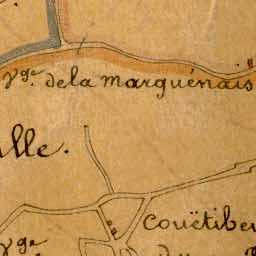 Vge. de la Marguénais
lle.
Couëtibe
Vge